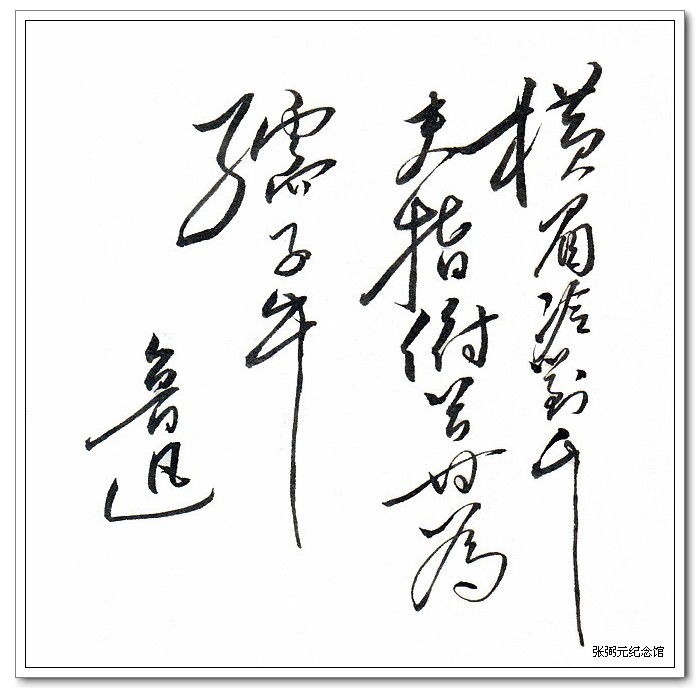 橫眉冷對千
夫指俯首甘為
孺子牛
魯迅
张弼元纪念馆